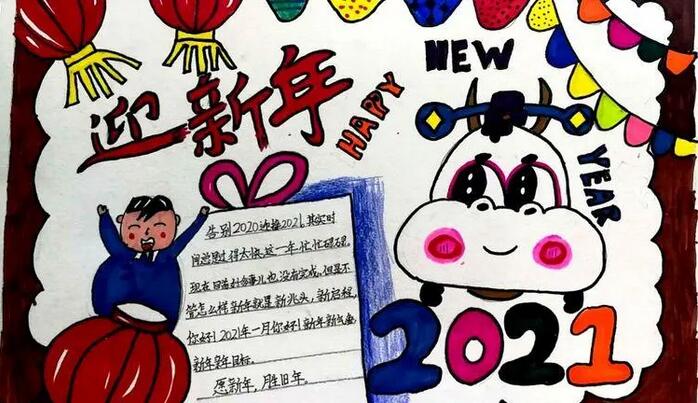 迎新年
HAPPY
NEW
YEAR
告别2020迎接2021。其实时
间总是过得太快。这一年,忙忙碌碌,
现在回首好像事儿也没有完成。但是不
管怎么样新年就是新兆头,新启程,
你好!2021年一月你好!新年新气象
新年新目标。
愿新年,胜旧年。
2021